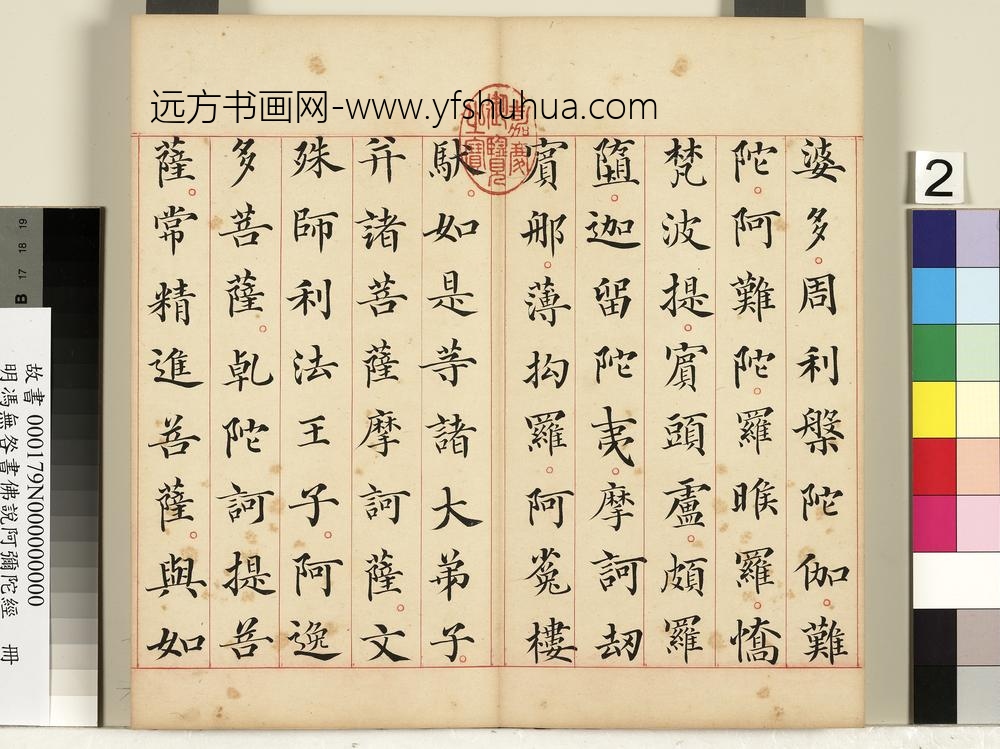 远方书画网-www.yfshuhua.com
嘉慶御覽之寶
婆多。周利槃陀伽。難
陀。阿難陀。羅睺羅。憍
梵波提。賓頭盧。頗羅
墮。迦留陀夷。摩訶劫
賓那。薄拘羅。阿㝹樓
馱。如是等諸大弟子。
并諸菩薩摩訶薩。文
殊師利法王子。阿逸
多菩薩。乾陀訶提菩
薩。常精進菩薩。與如
2
19
18
17
B
故書 000179N000000000
明馮無咎書佛說阿彌陀經 冊